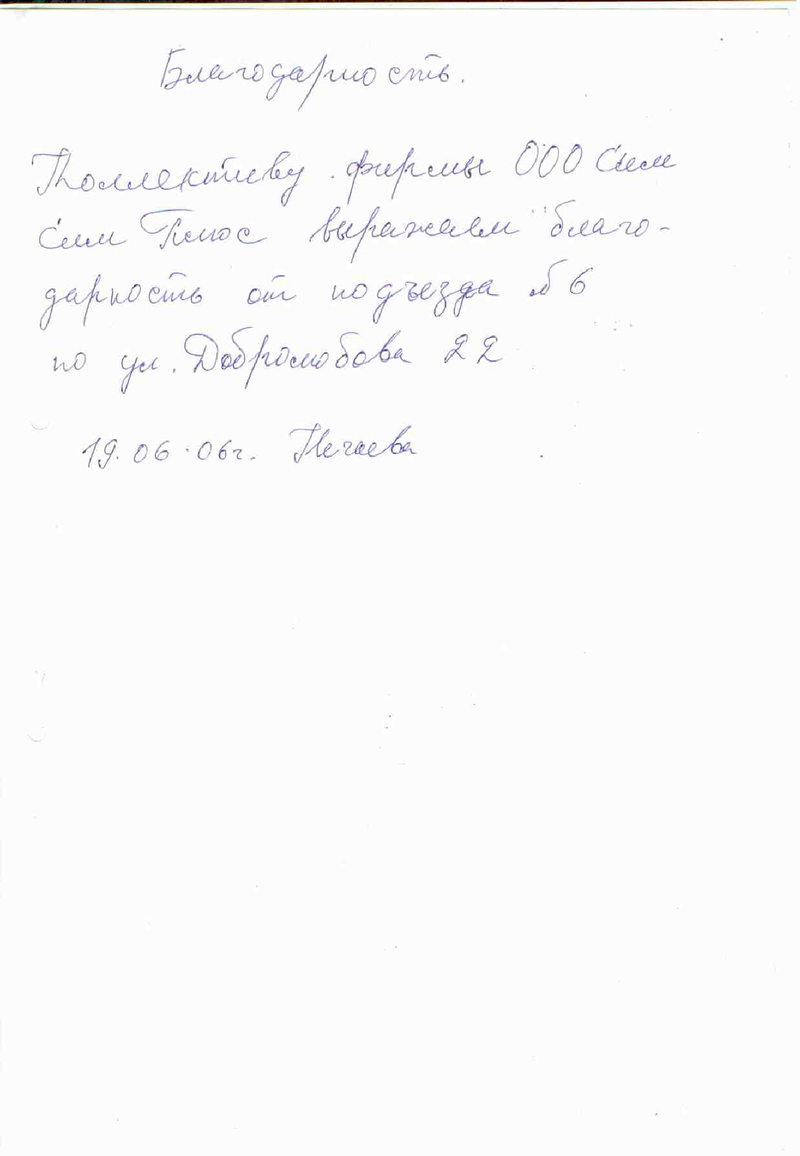 Благодарность.
Коллективу фирмы ООО Сим
Сим Плюс выражаем благо-
дарность от подъезда №6
по ул. Добролюбова 22
19.06.06г. Нечаева